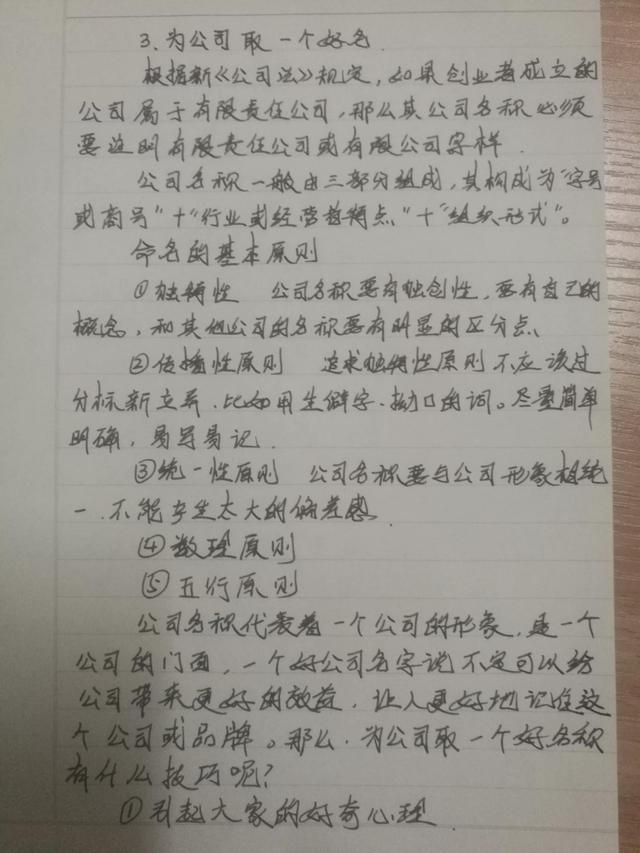 3、为公司取一个好名
根据新《公司法》规定,如果创业者成立的
公司属于有限责任公司,那么其公司名称必须
要注明有限责任公司或有限公司字样.
公司名称一般由三部分组成,其构成为"字号
或商号"十"行业或经营者特点"十"组织形式"。
命名的基本原则
①独特性 公司名称要有独创性,要有自己的
概念,和其他公司的名称要有明显的区分点、
②传播性原则 追求独特性原则不应该过
分标新立异.比如用生僻字、拗口的词。尽量简单
明确,易写易记.
③统一性原则 公司名称要与公司形象相统
一.不能产生太大的偏差感、
④数理原则
⑤五行原则
公司名称代表着一个公司的形象,是一个
公司的门面,一个好公司名字说不定可以给
公司带来更好的效益,让人更好地记住这
个公司或品牌。那么.为公司取一个好名称
有什么技巧呢?
①引起大家的好奇心理